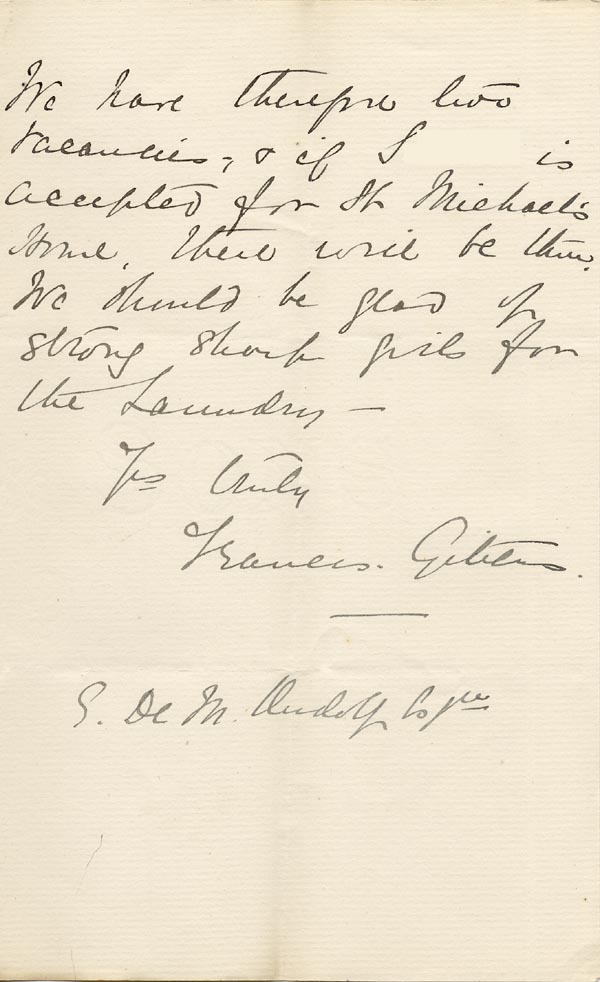 We have therefore two
vacancies, & if S is
accepted for St Michael's
Home, there will be three.
We should be glad of
strong sharp girls for
the Laundry —
Yrs truly
Frances. Gibbens.
E. De M. Rudolf Esqre